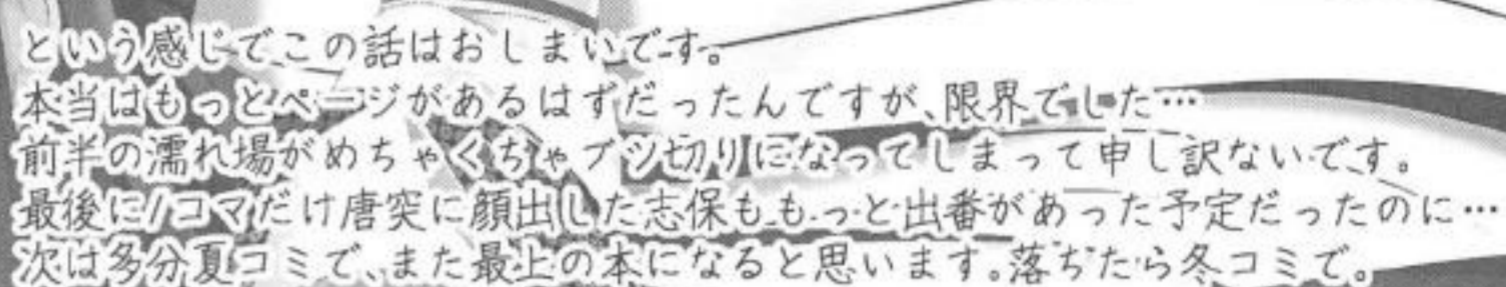 という感じでこの話はおしまいです。
本当はもっとページがあるはずだったんですが、限界でした…
前半の濡れ場がめちゃくちゃブツ切りになってしまって申し訳ないです。
最後に1コマだけ唐突に顔出した志保ももっと出番があった予定だったのに…
次は多分夏コミで、また最上の本になると思います。落ちたら冬コミで。